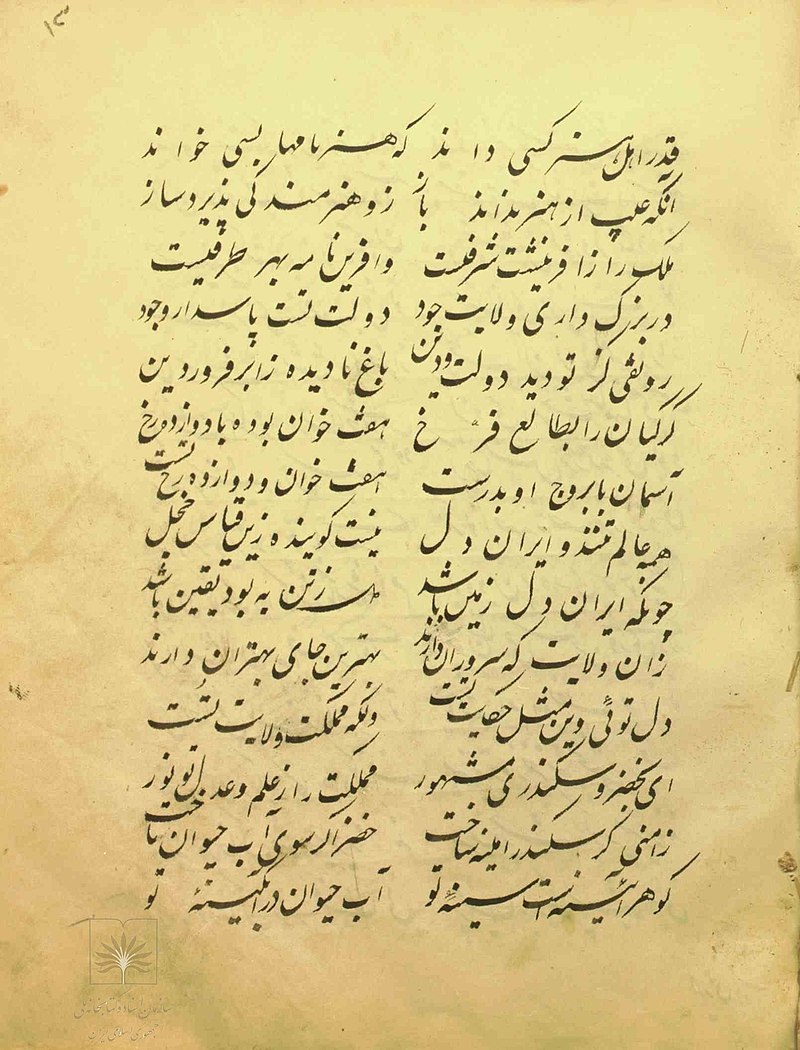 ۱۳
قدر اهل هنر کسی داند که هنر نامها بسی خواند
آنکه عیب از هنر نداند باز زو هنرمند کی پذیرد ساز
ملک را زافرینشت شرفست وافرین نامه بهر طرفیست
در بزرک داری ولایت جود دولت تست پاسدار وجود
رونقی کز تو دید دولت و دین باغ نادیده زابر فروردین
کر کیان را بطالع فرخ هفت خوان بود با دوازده رخ
آسمان با بروج او بدرست هفت خوان و دوازده رخ تست
همه عالم تنند و ایران دل نیست کوینده زین قیاس خجل
چونکه ایران دل زمین باشد دل ز تن به بود یقین باشد
زان ولایت که سروران دارند بهترین جای بهتران دارند
دل توئی وین مثل حکایت تست ونکه مملکت ولایت تست
ای بخضر و سکندری مشهور مملکت را ز علم و عدل تو نور
زامنی کر سکندر اینه ساخت خضر اکر سوی آب حیوان تاخت
کوهر آئینه است سینهٔ تو آب حیوان در آبکینهٔ تو
سازمان اسناد و کتابخانه ملی
جمهوری اسلامی ایران